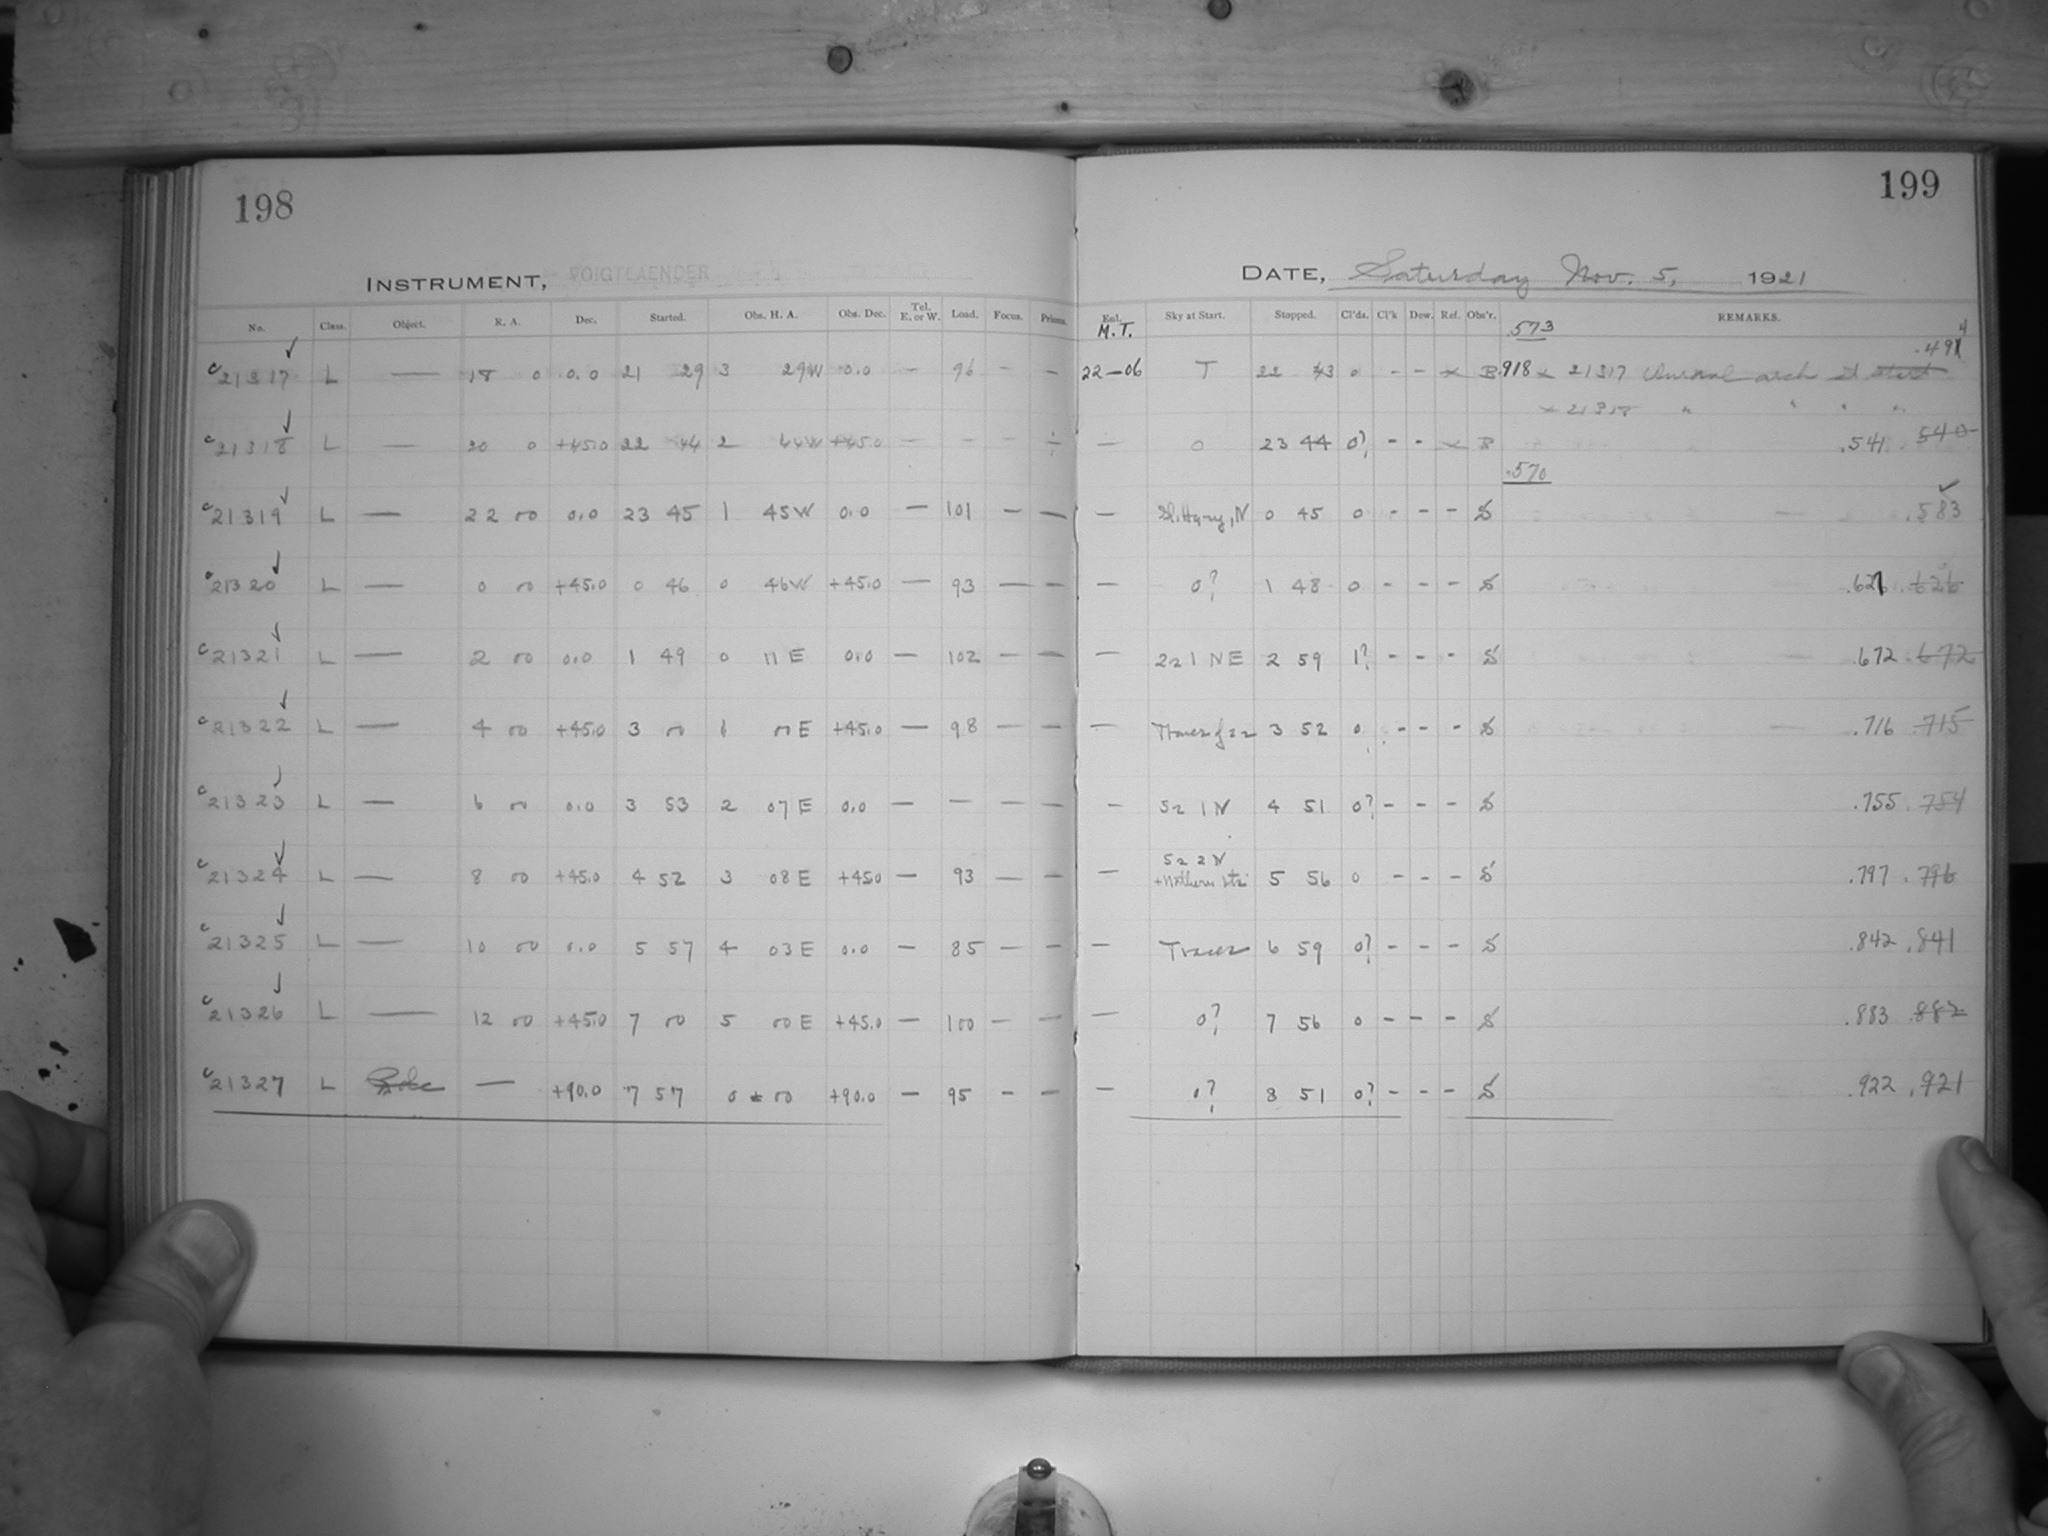 198
199
INSTRUMENT, VOIGTLAENDER
DATE, Saturday Nov. 5, 1921
No. Class. Object. R. A. Dec. Started. Obs. H. A. Obs. Dec. Tel. E. or W. Load. Focus. Prisms. Enl. M.T. Sky at Start. Stopped. Cl'ds. Cl'k Dew. Ref. Obs'r. .573 REMARKS.
c 21317 ✓ L — 18 0 0.0 21 29 3 29W 0.0 - 96 - - 22-06 T 22 43 0 - - x B .918 x 21317 Unusual arch at start .491 4
x 21318 " " " "
c 21318 ✓ L — 20 0 +45.0 22 44 2 44W +45.0 — - - — 0 23 44 0? - - x B .541 540
.570
c 21319 ✓ L — 22 00 0.0 23 45 1 45W 0.0 — 101 - — — Sl. Hazy, N 0 45 0 - - - S .583 ✓
c 21320 ✓ L — 0 00 +45.0 0 46 0 46W +45.0 — 93 — — — 0? 1 48 0 - - - S .627 .626
c 21321 ✓ L — 2 00 0.0 1 49 0 11 E 0.0 — 102 - — — 221 NE 2 59 1? - - - S .672 .672
c 21322 ✓ L — 4 00 +45.0 3 00 1 00 E +45.0 — 98 — — — Traces of 22 3 52 0 - - - S .716 .715
c 21323 ✓ L — 6 00 0.0 3 53 2 07 E 0.0 — — — — - 52 1 N 4 51 0? - - - S .755 .754
c 21324 ✓ L — 8 00 +45.0 4 52 3 08 E +45.0 — 93 — — — 52 2 N + Northern Lts. 5 56 0 - - - S .797 .796
c 21325 ✓ L — 10 00 0.0 5 57 4 03 E 0.0 — 85 - — — Traces 6 59 0? - - - S .842 .841
c 21326 ✓ L — 12 00 +45.0 7 00 5 00 E +45.0 — 100 — — — 0? 7 56 0 - - - S .883 .882
c 21327 L Pole — +90.0 7 57 0 ± 00 +90.0 — 95 - — — 0? 8 51 0? - - - S .922 .921